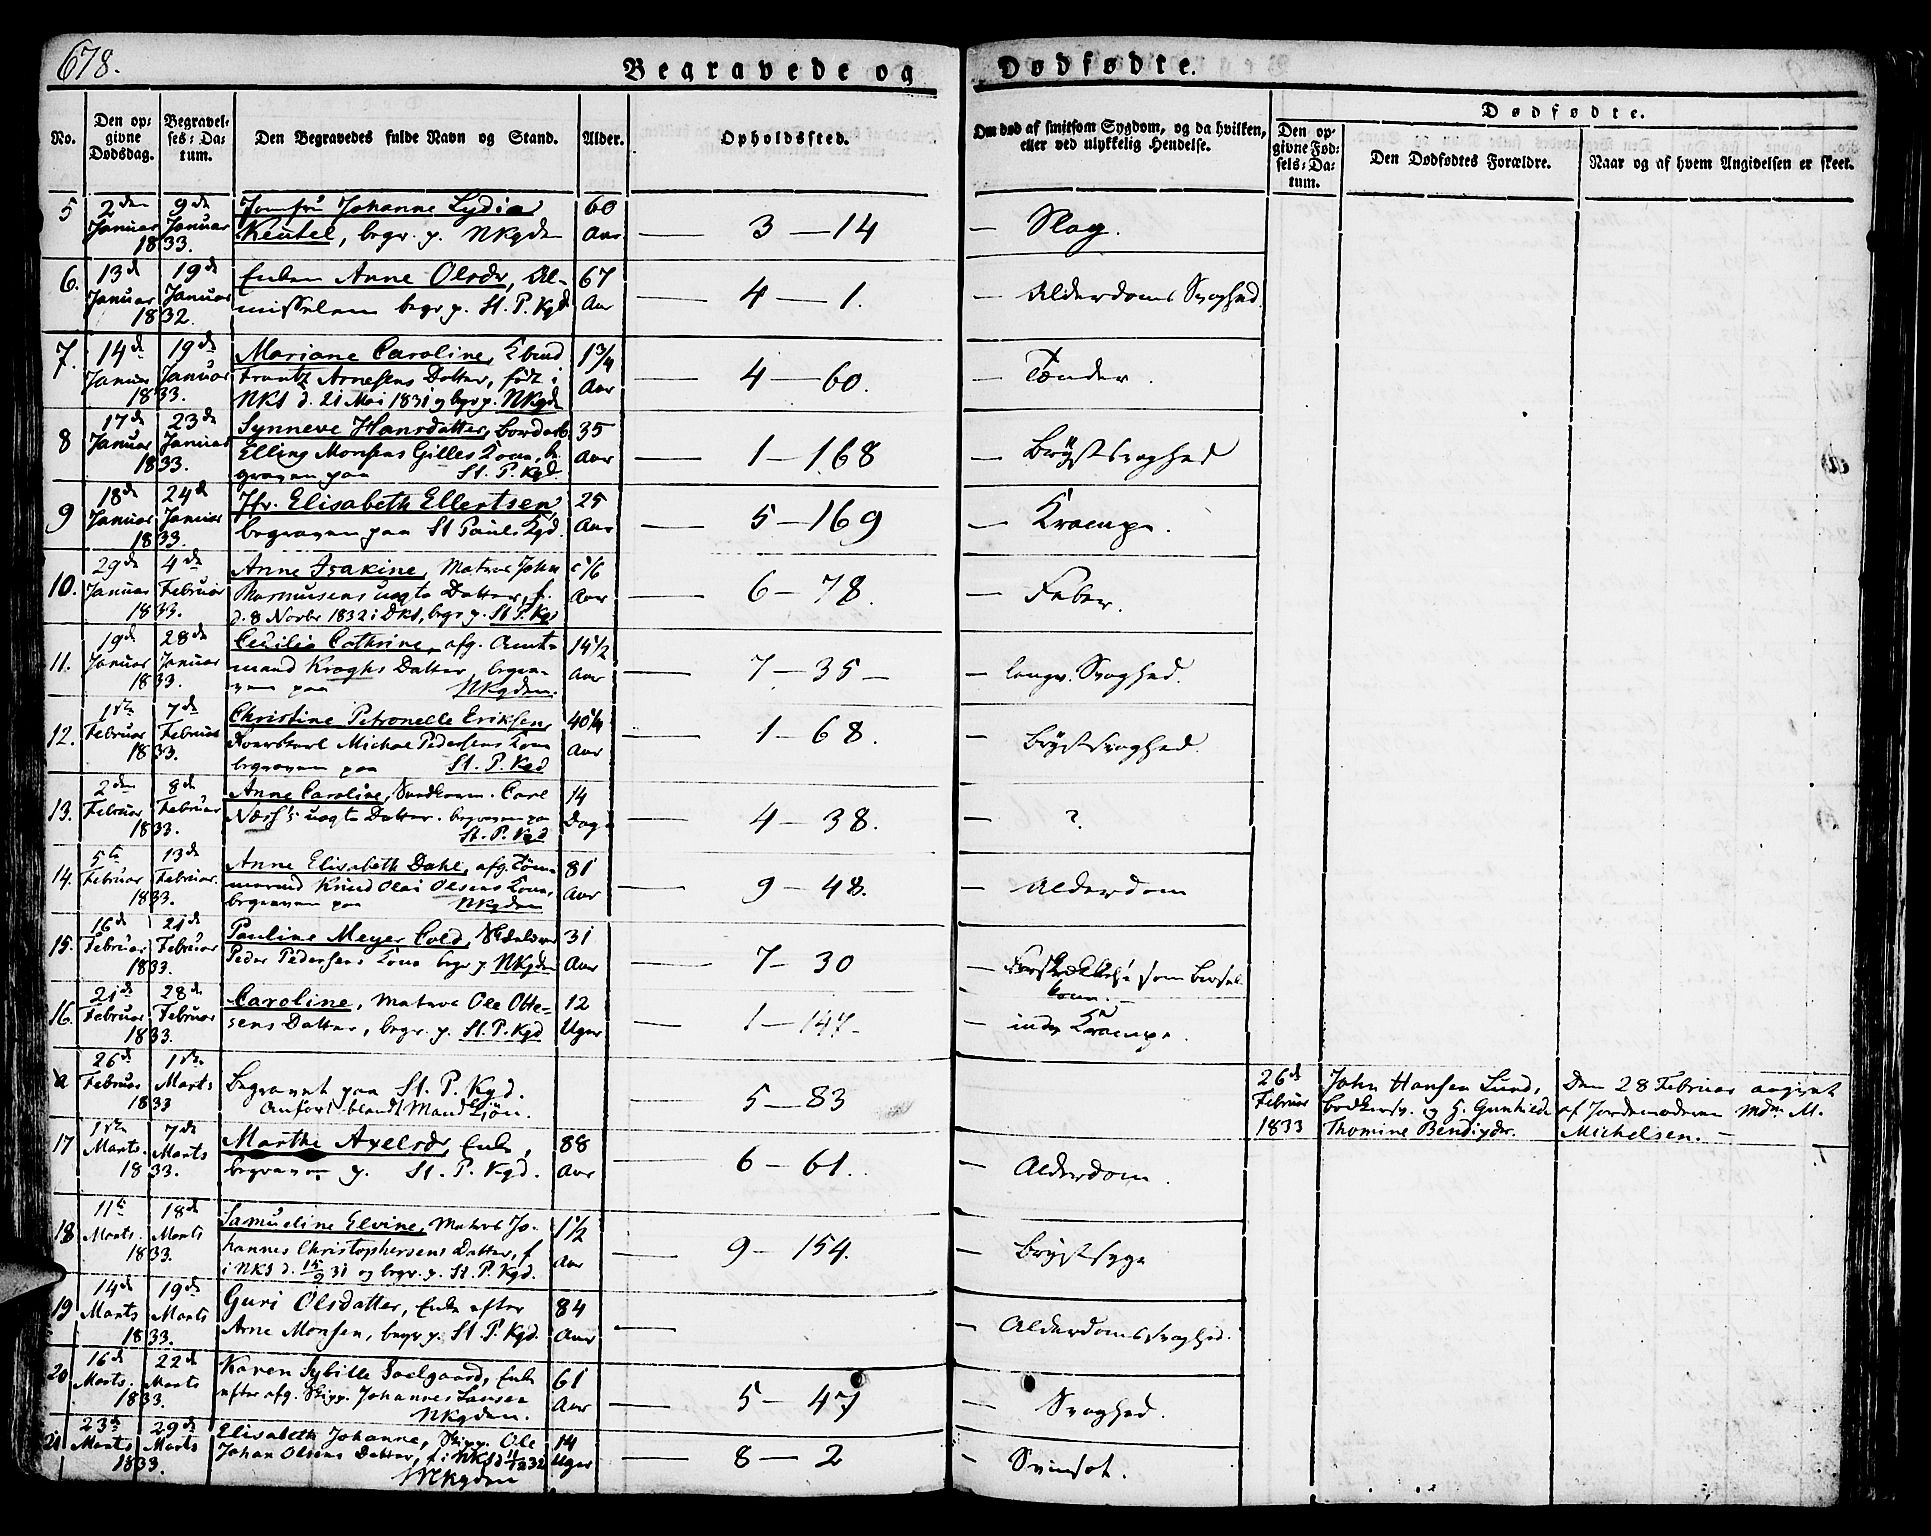 678.
Begravede og Dødfødte.
No.
Den opgivne Dødsdag.
Begravelses-Datum.
Den Begravedes fulde Navn og Stand.
Alder.
Opholdssted.
Om død af smitsom Sygdom, og da hvilken, eller ved ulykkelig Hendelse.
Dødfødte.
Den opgivne Fødsels-Datum.
Den Dødfødtes Forældre.
Naar og af hvem Angivelsen er skeet.
5 2den Januar 1833. 9de Januar Jomfru Johanne Lydia 60 Aar 3 - 14 - Slag.
Keutel, begr. p. NKgden
6. 13de Januar 1832. 19de Januar Enken Anne Olsdr, Al- 67 Aar 4 - 1. - Alderdoms Svaghed.
misselem begr p. St. P. Kgd
7. 14de Januar 1833. 19de Januar Mariane Caroline, 1 3/4 Aar 4 - 60. - Tænder.
Frantz Arnesens Datter, født i
NKS d. 21 Mai 1831 og begr p. NKgd
8 17de Januar 1833. 23de Januar Synneve Hansdatter, 35 Aar 1 - 168 - Brystsvaghed
Elling Monsens Gilles Kone, be
graven paa St. P. Kgd.
9 18de Januar 1833. 24de Januar Jfr. Elisabeth Ellertsen, 25 Aar 5 - 169 - Krampe.
begraven paa St Pauls Kgd.
10. 29de Januar 1833. 4de Februar Anne Isakine, Matros John 1/6 Aar 6 - 78. - Feber.
Rasmusens uægte Datter, f.
d. 8 Novbr 1832 i DKS, begr p. St. P. Kg
11. 19de Januar 1833. 28de Januar Cecilia Cathrine, afg. Amt- 14 1/2 Aar 7 - 35 - - langv. Svaghed.
mand Kraghs Datter, begra-
ven paa NKgden.
12. 1ste Februar 1833. 7de Februar Christine Petronelle Eriksen, 40 1/4 Aar 1 - 68. - Brystsvaghed.
Michal Pedersens Kone
begraven paa St. P. Kgd
13. 2den Februar 1833. 8de Februar Anne Caroline, Carl 14 Dage 4 - 38. - ?
Næss's uægte Datter. begraven paa
St. P. Kgd
14. 5te Februar 1833. 13de Februar. Anne Elisabeth Dahl, afg. Tøm- 81 Aar 9 - 48. - Alderdom
mermand Knud Olai Olsens Kone,
begraven paa NKgden
15. 16de Februar 1833. 21de Februar Pauline Meyer Cold, 31 Aar 7 - 30 - Forskrækkelse som Barsel
Peder Pedersens Kone begr p NKgden
kone. -
16. 21de Februar 1833. 28de Februar Caroline, Matros Ole Otte- 12 Uger 1 - 147 - indv Krampe.
sens Datter, begr. p. St. P. Kgd
a 26de Februar 1833 1ste Marts Begravet paa St. P. Kgd. 5 - 83 26de Februar 1833 John Hansen Lund, Den 28 Februar angivet
Anført blandt Mandkjøn. og H. Gunhilde af Jordemoderen Mdm M.
Thomine Bendixdr. Michelsen. -
17 1ste Marts. 1833. 7de Marts Marthe Axelsdr, Enke, 88 Aar 6 - 61. - Alderdom.
begraven p. St. P. Kgd.
18 11te Marts. 1833. 18de Marts Samueline Elvine, Matros Jo- 1 1/2 Aar 9 - 154. - Brystsyge
hannes Christophersens Datter, f.
i NKS d. 15/9 31 og begr. p. St. P. Kgd.
19 14de Marts 1833. 19de Marts Guri Olsdatter, Enke efter 84 Aar - Alderdomssvaghed.
Arne Monsen, begr. p. St. P. Kgd.
20 16de Marts. 1833. 22de Marts Karen Sybille Enke 61 Aar 5 - 47 - Svaghed.
efter afg. Skipp. Johannes Lausen
NKgden.
21 23de Marts 1833. 29de Marts Elisabeth Johanne, Skipp. Ole 14 Uger 8 - 2 - Svinsot.
Johan Olsens Datter, f. i NKS d 11/12 32
NKgden